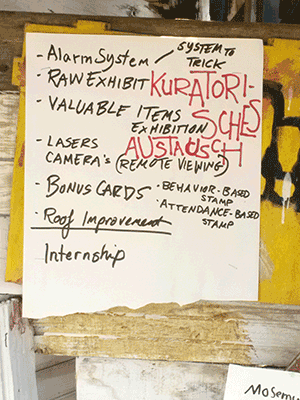 - Alarm System / SYSTEM TO TRICK
- RAW EXHIBIT
KURATORI-
SCHES
AUSTAUSCH
- VALUABLE ITEMS
EXHIBITION
- LASERS
CAMERA's (REMOTE VIEWING)
- BONUS CARDS
• BEHAVIOR-BASED
STAMP
• ATTENDANCE-BASED
STAMP
- Roof Improvement
Internship